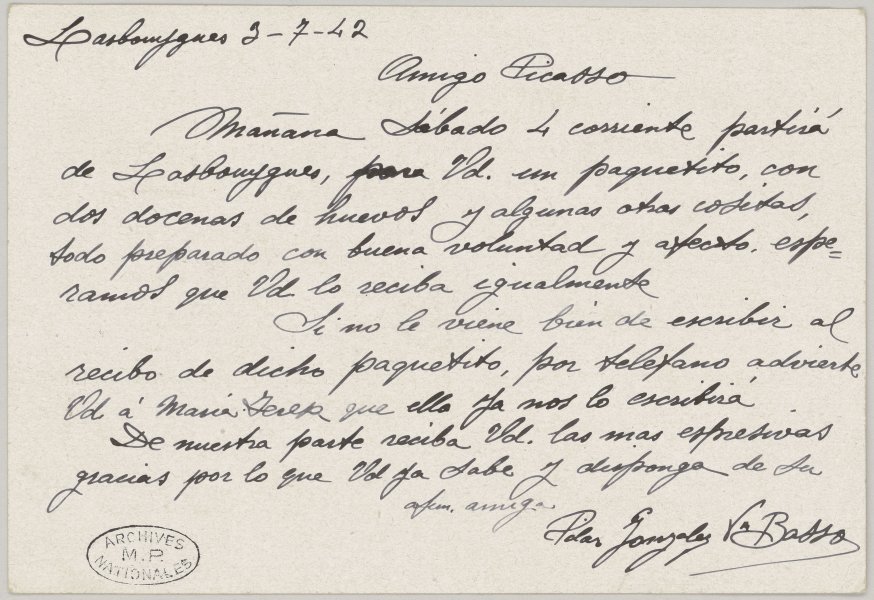 Lasbouygues 3-7-42
Amigo Picasso
Mañana Sábado 4 corriente partirá
de Lasbouygues, para Vd. un paquetito, con
dos docenas de huevos y algunas otras cositas,
todo preparado con buena voluntad y afecto. espe=
ramos que Vd lo reciba igualmente
Si no le viene bién de escribir al
recibo de dicho paquetito, por telefano advierte
Vd á Maria Teresa que ella ya nos lo escribirá
De nuestra parte reciba Vd. las mas espresivas
gracias por lo que Vd ya sabe y disponga de su
afm. amiga
Pilar Gonzalez Vª Basso
ARCHIVES
M.P.
NATIONALES